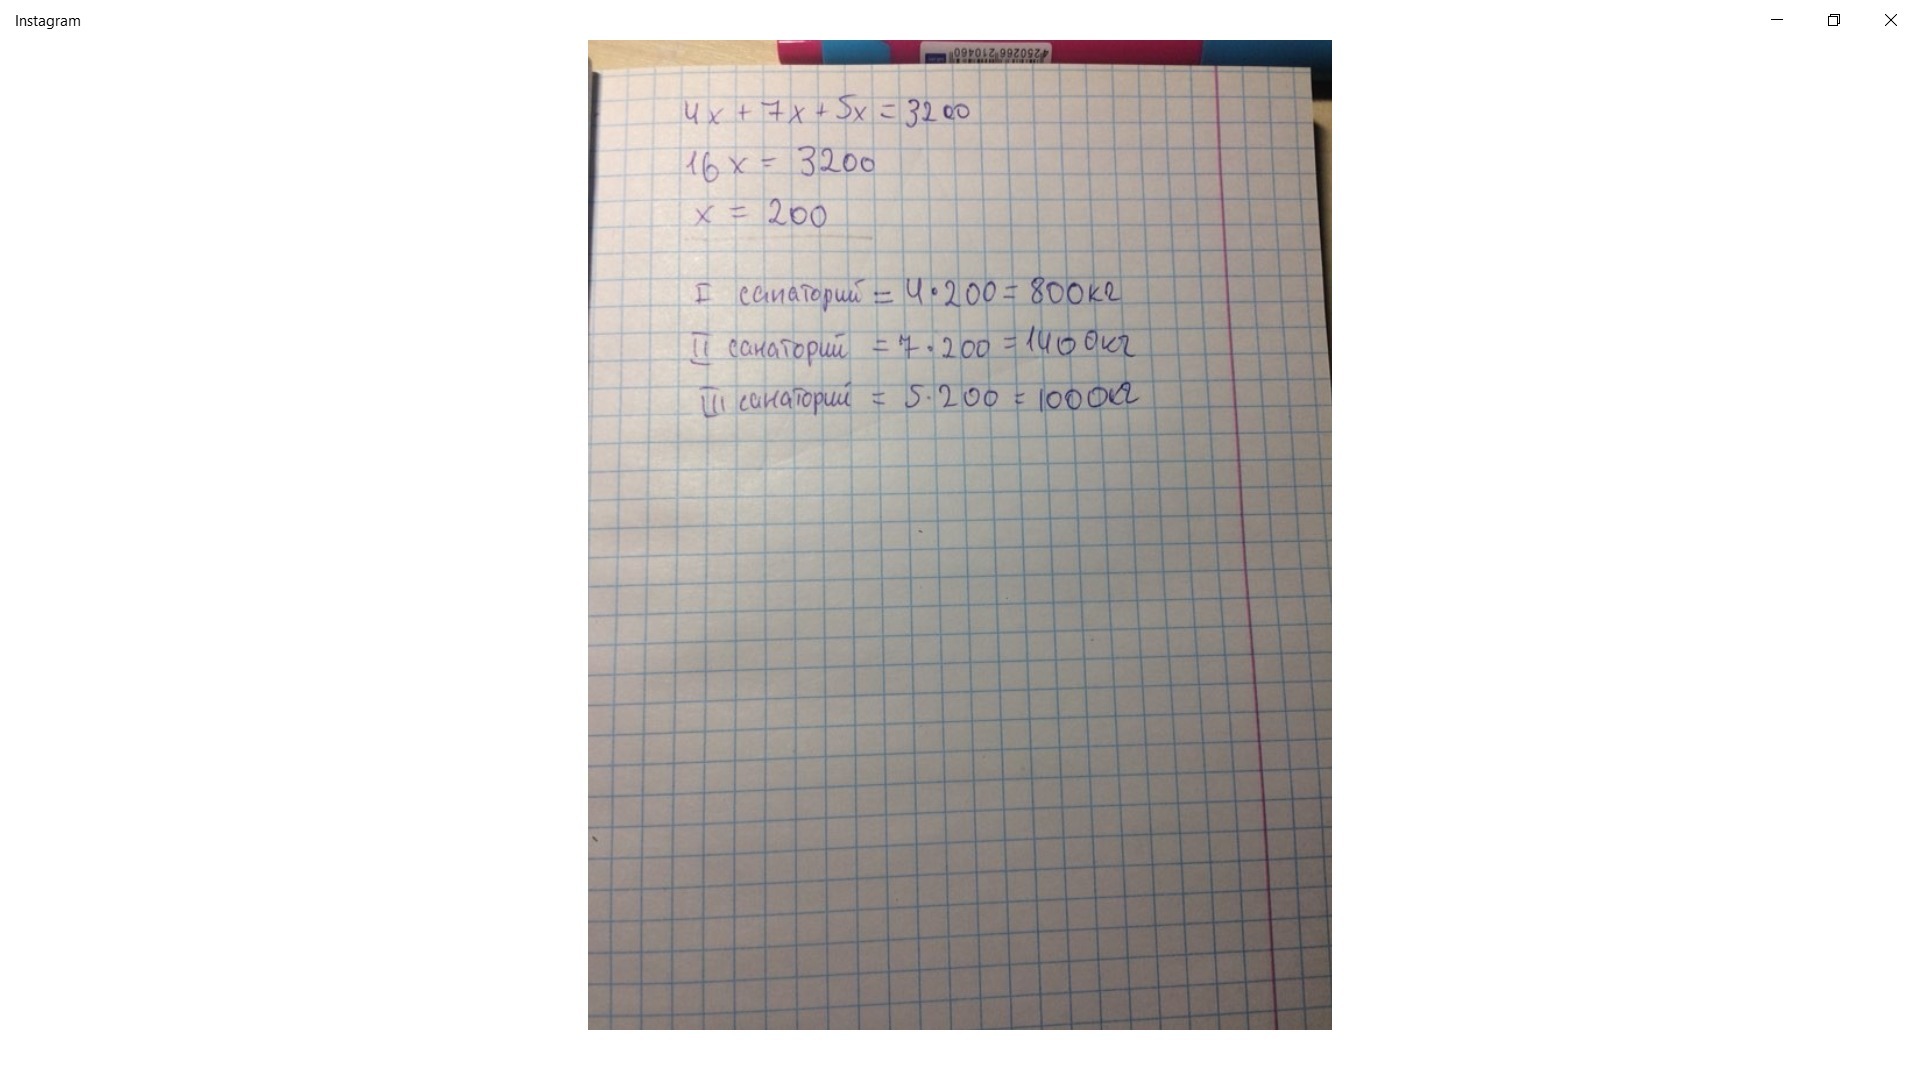 Instagram
4250266210460
4x + 7x + 5x = 3200
16x = 3200
x = 200
I санаторий = 4·200 = 800кг
II санаторий = 7·200 = 1400кг
III санаторий = 5·200 = 1000кг